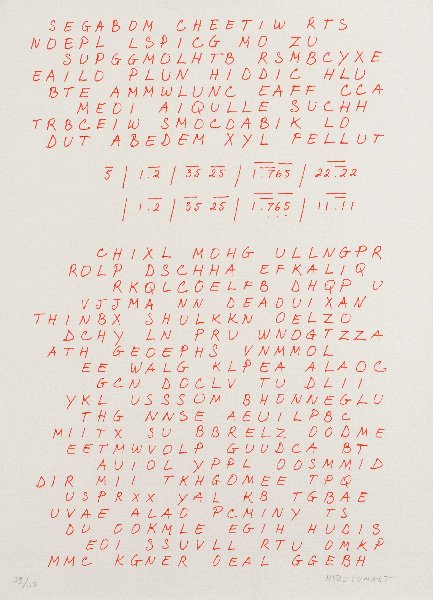 SEGABOM CHEETIW RTS
NOEPL LSPICG MO ZU
SUPGGMOLHTB RSMBCYXE
EAILO PLUN HIDDIC HLU
BTE AMMWLUNC EAFF CCA
MEDI AIQULLE SUCHH
TRBCEIW SMOCDABIK LO
DUT ABEDEM XYL FELLUT
5 | 1.2 | 35 25 | 1.765 | 22.22
| 1.2 | 35 25 | 1.765 | 11.11
CHIXL MOHG ULLNGPR
ROLP DSCHHA EFKALIQ
RKQLCOELFB DHQP U
VJJMA NN DEAOUIXAN
THINBX SHULKKN OELZO
DCHY LN PRU WNOGTZZA
ATH GEOEPHS VNMMOL
EE WALG KLPEA ALAOG
GCN DOCLV TU DLII
YKL USSSOM BHONNEGLU
THG NNSE AEUILPBC
MIITX SU BBRELZ OODME
EETMWVOLP GUUDCA BT
AUIOL YPPL OOSMMID
DIR MII TKHGDMEE TPQ
USPRXX YAL KB TGBAE
UVAE ALAO PCMINY TS
DU OOKMLE EGIH HUDIS
EOI SSUVLL RTU OMKP
MMC KGNER OEAL GGEBH